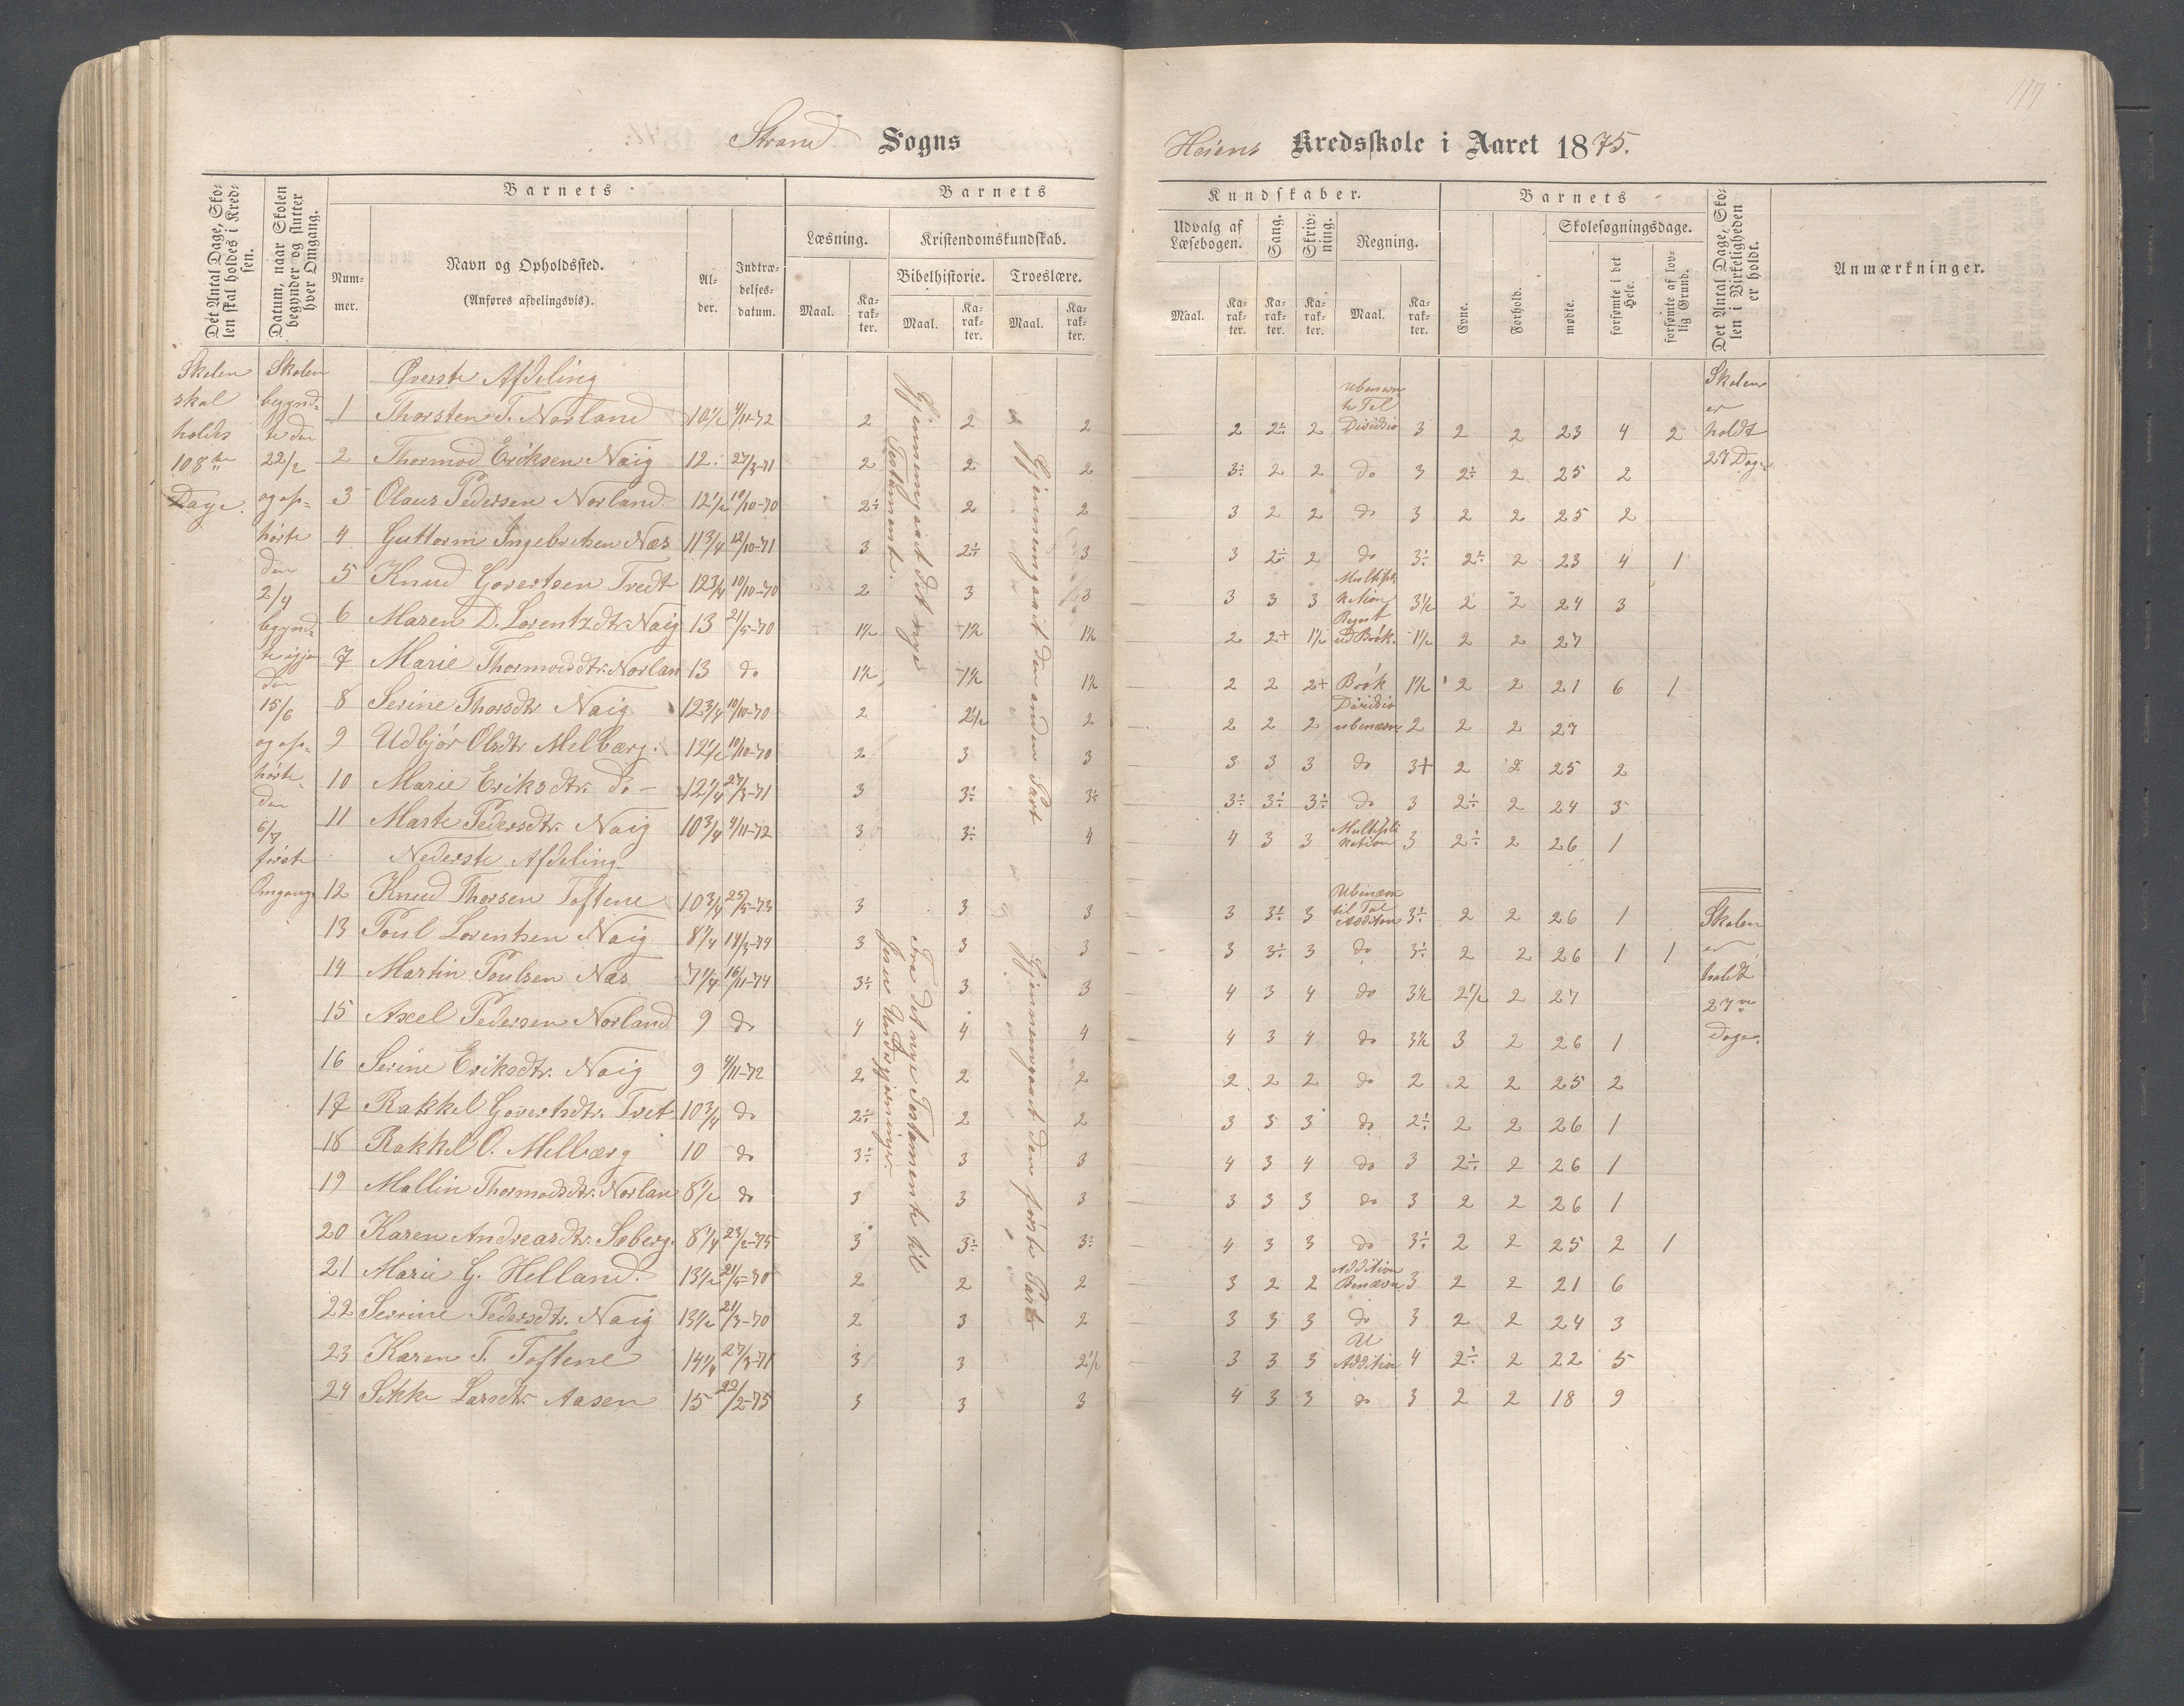 117
Strand Sogns
Heiens Kredsskole i Aaret 1875.
Det Antal Dage, Skolen skal holdes i Kredsen.
Datum, naar Skolen begynder og slutter hver Omgang.
Barnets
Nummer.
Navn og Opholdssted.
(Anføres afdelingsvis).
Alder.
Indtrædelsesdatum.
Barnets
Læsning.
Kristendomskundskab.
Bibelhistorie.
Troeslære.
Maal.
Karakter.
Maal.
Karakter.
Maal.
Karakter.
Kundskaber.
Udvalg af Læsebogen.
Sang.
Skrivning.
Regning.
Maal.
Karakter.
Karakter.
Karakter.
Maal.
Karakter.
Barnets
Evne.
Forhold.
Skolesøgningsdage.
mødte.
forsømte i det Hele.
forsømte af lovlig Grund.
Det Antal Dage, Skolen i Virkeligheden er holdt.
Anmærkninger.
Skolen
skal
holdes
108
Dage.
Skolen
begynd-
te den
22/2
og op-
hørte
den
2/4
begynd-
te igjen
den
15/6
og op-
hørte
den
6/7
første
Omgang.
Gjennemgaaet det nye
Testamente.
Gjennemgaaet den anden Part
Fra det nye Testamente til
Jesu Undergjerninger.
Gjennemgaaet den første Part
Skolen
er
holdt
27 Dage.
Øverste Afdeling
1 Thorsten T. Norland 10 1/2 4/11-72 2 2 2 2 2÷ 2 Division 3 2 2 23 4 2
2 Thormod Eriksen Naig 12. 27/3-71 2 2 2 3÷ 2 2 do 3 2÷ 2 25 2
3 Olaus Pedersen Norland 12 1/2 10/10-70 2÷ 2 2 3 2 2 do 3 2 2 25 2
4 Guttorm Ingebretsen Næs 11 3/4 12/10-71 3 2÷ 3 3 2÷ 2 do 3÷ 2÷ 2 23 4 1
5 Knud Govertsen Tvedt 12 3/4 10/10-70 2 3 3 3 3 3 3 1/2 2 2 24 3
6 Maren D. Lorentzdtr Naig 13 21/5-70 1 1/2 1 1/2 1 1/2 2 2+ 1 1/2 1 1/2 2 2 27
7 Marie Thormodsdtr. Norlan 13 do 1 1/2 1 1/2 1 1/2 2 2 2+ Brøk 1 1/2 2 2 21 6 1
8 Serine Thorsdtr Naig 12 3/4 10/10-70 2 2 1/2 2 2 2 2 Division ubenævn 2 2 2 27
9 Udbjør Olsdtr Melberg. 12 1/2 10/10-70 2 3 3 3 3 3 do 3+ 2 2 25 2
10 Marie Eriksdtr. do 12 1/4 27/3-71 3 3÷ 3÷ 3÷ 3÷ 3÷ do 3 2÷ 2 24 3
11 Marte Pedersdtr. Naig 10 3/4 4/11-72 3 3÷ 4 4 3 3 Multipli kation 3 2÷ 2 26 1
Nederste Afdeling
12 Knud Thorsen Toftene 10 3/4 25/5-73 3 3 3 3 3÷ 3 Ubenævn til Tal Addition 3÷ 2 2 26 1
13 Poul Lorentsen Naig 8 1/4 14/3-74 3 3 3 3 3÷ 3 do 3÷ 2 2 26 1 1
14 Martin Poulsen Næs 7 1/4 16/11-74 3÷ 3 3 4 3 4 do 3 1/2 2 1/2 2 27
15 Axel Pedersen Norland 9 do 4 4 4 4 3 4 do 3 1/2 3 2 26 1
16 Serine Eriksdtr. Naig 9 4/11-72 2 2 2 2 2 2 do 2 2 2 25 2
17 Rakkel Govertsdtr. Tvet 10 3/4 do 2÷ 2 2 3 3 3 do 2÷ 2 2 26 1
18 Rakkel O. Melberg 10 do 3÷ 3 3 4 3 4 do 3 2÷ 2 26 1
19 Mallin Thormodsdtr. Norlan 8 1/2 do 3 3 3 3 3 3 do 3 2 2 26 1
20 Karen Andreasdtr. Søberg. 8 1/4 23/2-75 3 3÷ 3÷ 4 3 3 do 3÷ 2 2 25 2 1
21 Marie G. Helland. 13 1/2 21/5-70 2 2 2 3 2 2 Addition Benævn 3 2 2 21 6
22 Serine Pedersdtr. Naig 13 1/2 21/3-70 2 3 2 3 3 3 do 3 2 2 24 3
23 Karen T. Toftene 14 1/4 27/3-71 3 3 2 1/2 3 3 3 U Addition 4 2÷ 2 22 5
24 Sikke Larsdtr Aasen 15 22/2-75 3 3 3 4 3 3 do 3 2 2 18 9
Skolen
er
holdt
27
Dage.